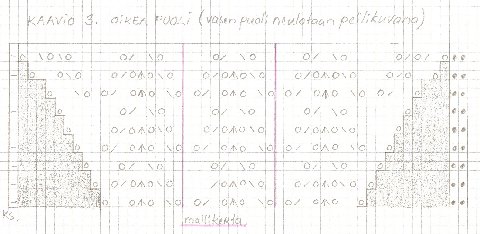 KAAVIO 3. OIKEA PUOLI (vasen puoli neulotaan peilikuvana)
Ks.
mallikerta